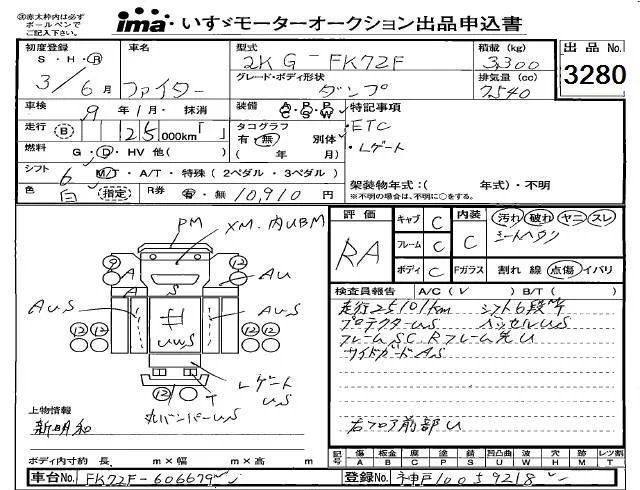 ※赤太枠内は必ず
ボールペンで
ご記入下さい。
ima いすゞモーターオークション出品申込書
初度登録
S・H・R
3／6月
車名
ファイター
型式
2KG-FK72F
グレード・ボディ形状
ダンプ
積載(kg)
3,300
排気量(cc)
7,540
出品No.
3280
車検
9年1月・抹消
走行 B 25,000km「 」
燃料 G・D・HV 他( )
シフト 6 M/T・A/T・特殊(2ペダル・3ペダル)
色 白 指定
R券 有・無 10,910円
装備 A/C P/S P/W
タコグラフ
有・無 別体
( 年 月)
特記事項
・ETC
・Lゲート
架装物年式:( 年式)・不明
※不明の場合は、不明に○をする。
PM
XM.内UBM
9
12
A
A
S
AU
12
AUS
AUS
12
12
12
12
井
UWS
Lゲート
US
T
12
丸バンパーUS
上物情報
新明和
ボディ内寸約 長 m×幅 m×高 m
評価
RA
キャブ C
フレーム C
ボディ C
内装 C
汚れ 破れ ヤニ スレ
シートヘタリ
Fガラス 割れ 線 点傷 イバリ
検査員報告 A/C(✓) B/T( )
走行25101km シフト6段M/T
プロテクターUS ベッセルUS
フレームSC Rフレーム先U
サイドガードAS
右フロア前部U
記号
傷 板金 腐 塗 錆 凹凸曲 波 穴 跡 レツ割
A B C P S U W H M T
車台No. FK72F-606679
登録No. 神戸100す9218